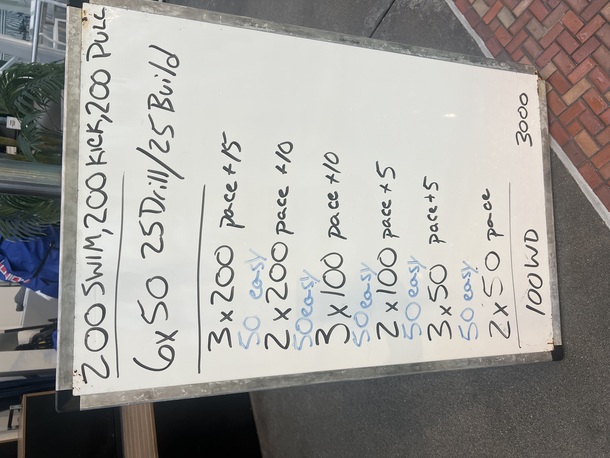 200 SWIM, 200 KICK, 200 PULL
6x50 25Drill/25Build
3x200 pace+15
50 easy
2x200 pace+10
50easy
3x100 pace+10
50easy
2x100 pace+5
50easy
3x50 pace+5
50 easy
2x50 pace
100WD 3000